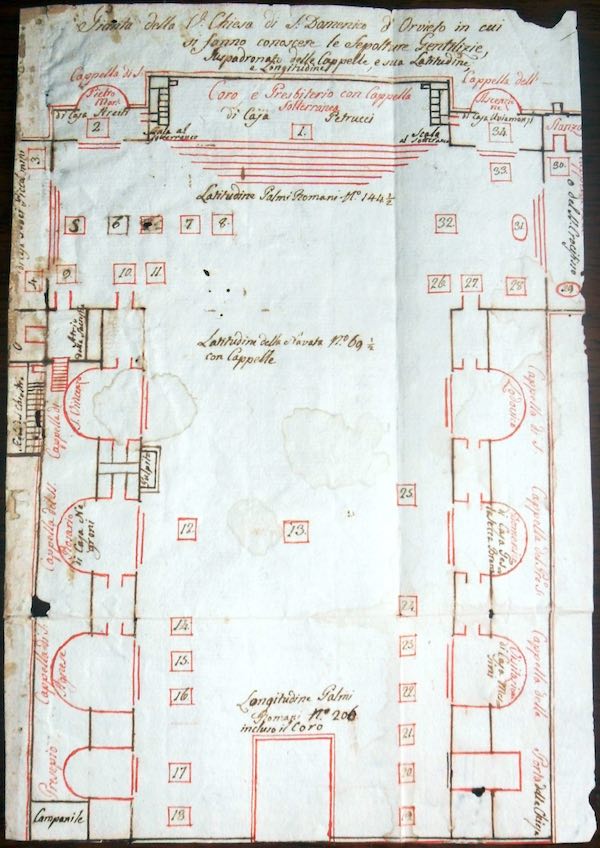 Pianta della V. Chiesa di S. Domenico d'Orvieto in cui
si fanno conoscere le Sepolture Gentilizie,
Juspadronato delle Cappelle, e sua Latitudine,
e Longitudine
Cappella di S.
Pietro Mar.
di Casa
2.
Scala al
Sotterraneo
Coro e Presbiterio con Cappella
Sotterranea
di Casa Petrucci
1.
Cappella dell'
di Casa
34.
Scala
al Sotterraneo
Stanza
33.
30.
3.
Latitudine Palmi Romani N.º 144½
5
6
7
8.
32.
31.
4.
9
10.
11.
26.
27.
28.
29
Latitudine della Navata N.º 69½
con Cappelle
Cappella di
S. Vincenzo
Cappella di S.
Lodovico
Pulpito
25.
Cappella del S.
Rosario
di Casa Ne
groni
12.
13.
Cappella del P. S.
Domenico
di Casa
24.
14.
23.
15.
16
22.
Cappella di S.
Agnese
Cappella della
di Casa
Longitudine Palmi
Romani N.º 206
incluso il Coro
21.
Presepio
17.
20.
Porta della Chiesa
Campanile
18.
19.